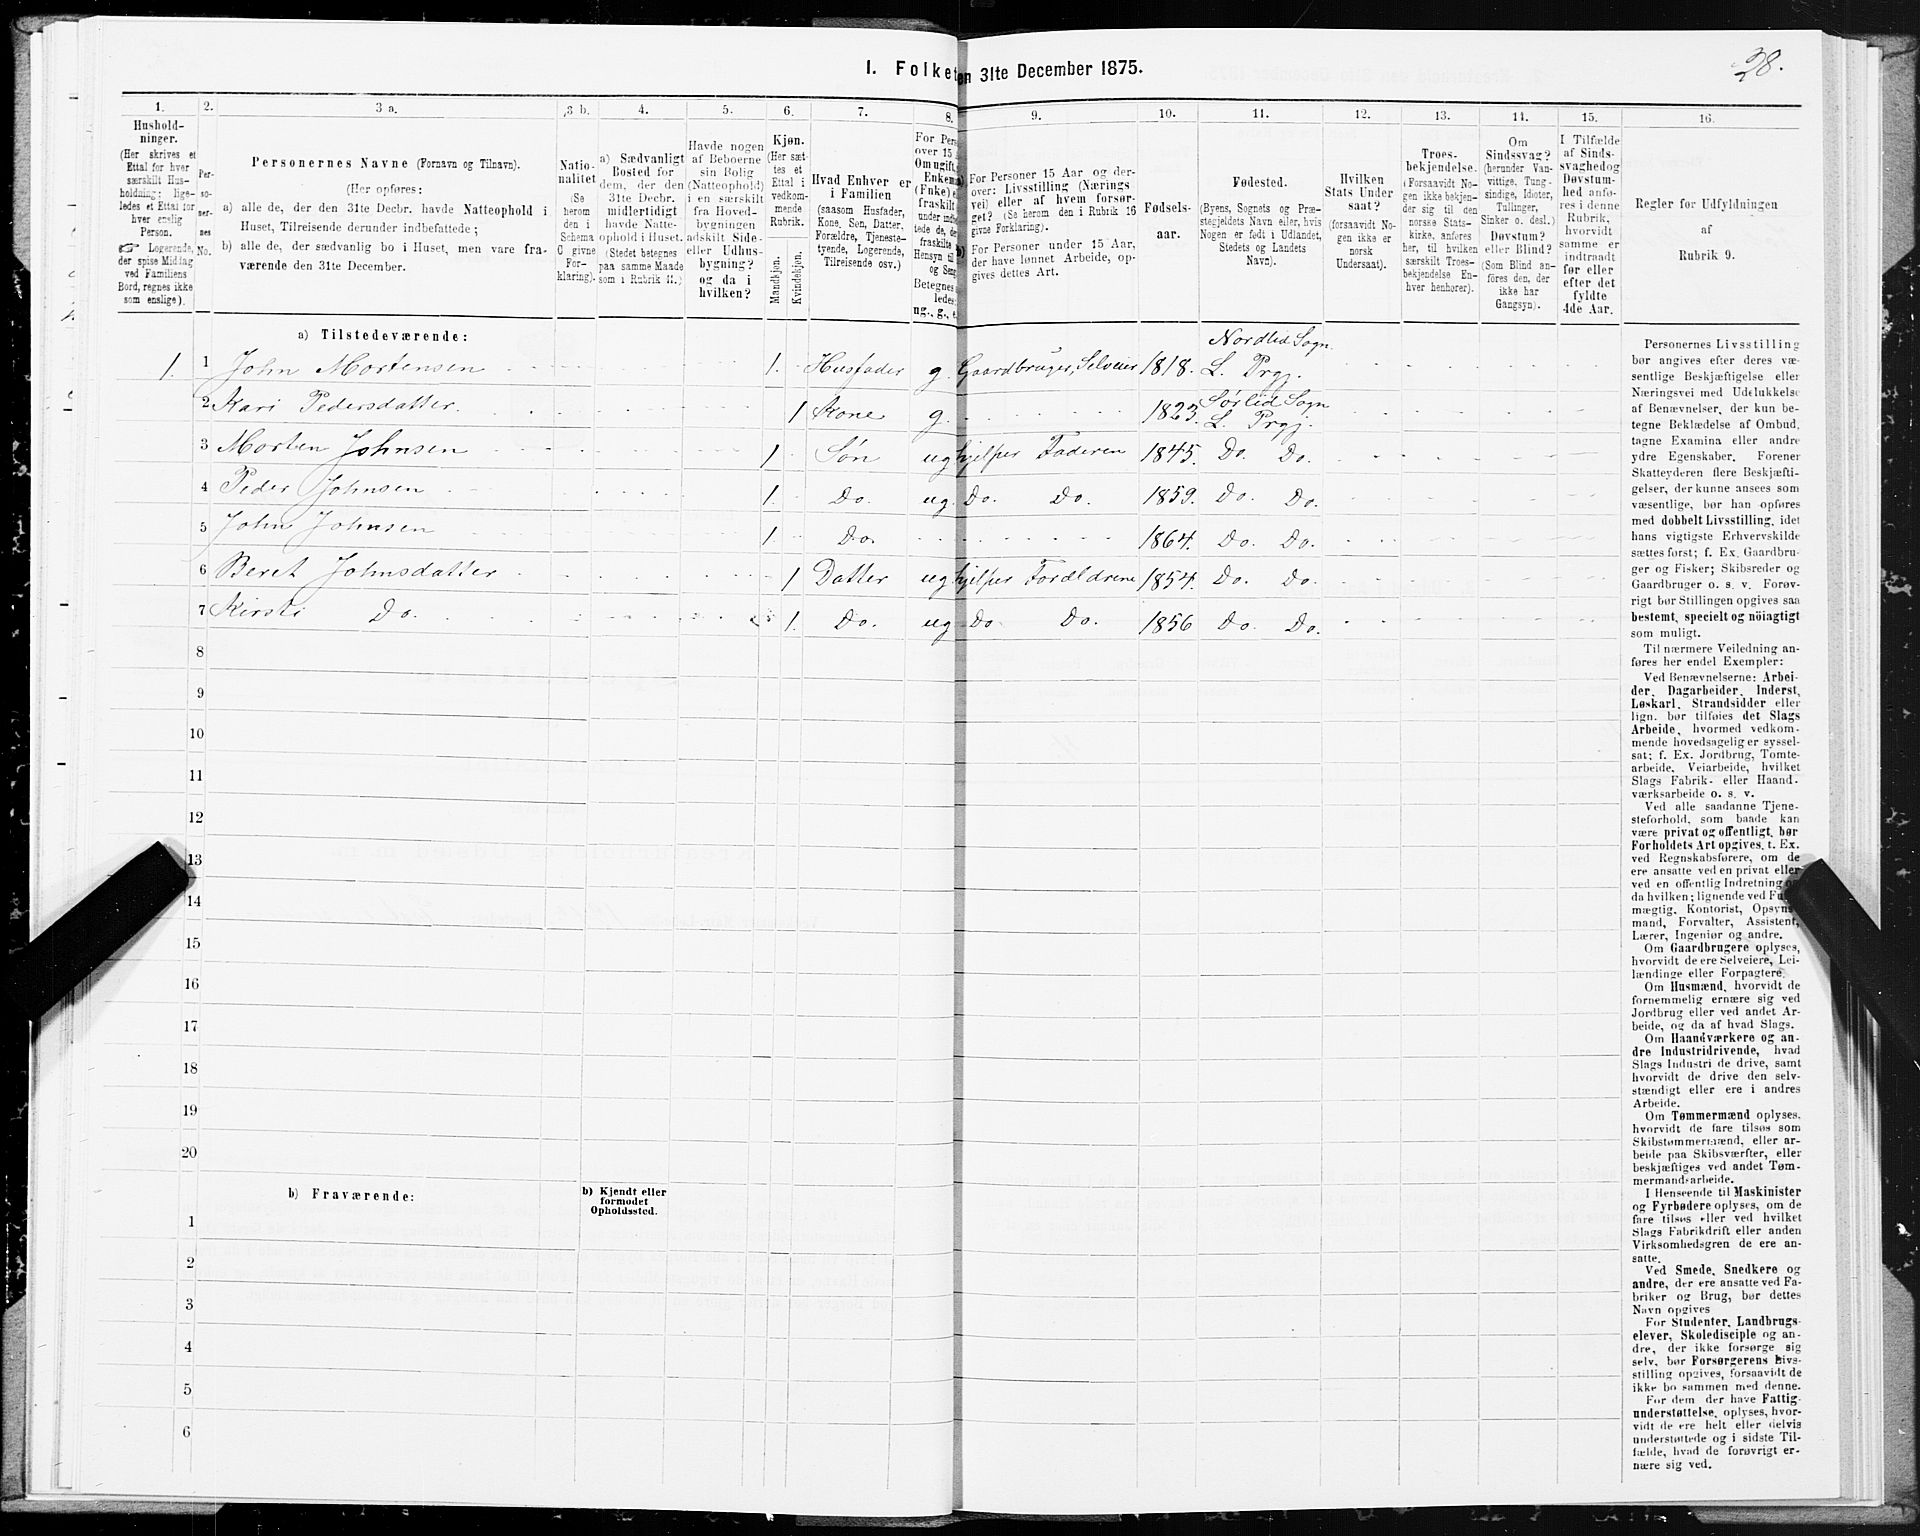 I. Folket
en 31te December 1875.
28.
1.
2.
3 a.
3 b.
4.
5.
6.
7.
8.
9.
10.
11.
12.
13.
14.
15.
16.
Hushold-
ninger.
(Her skrives et
Ettal for hver
særskilt Hus-
holdning; lige-
ledes et Ettal for
hver enslig
Person.
☞ Logerende,
der spise Middag
ved Familiens
Bord, regnes ikke
som enslige).
Per-
so-
ner-
nes
No.
Personernes Navne (Fornavn og Tilnavn).
(Her opføres:
a) alle de, der den 31te Decbr. havde Natteophold i
Huset, Tilreisende derunder indbefattede;
b) alle de, der sædvanlig bo i Huset, men vare fra-
værende den 31te December.
Natio-
nalitet
(Se
herom
den i
Schema
C givne
For-
klaring).
a) Sædvanligt
Bosted for
dem, der den
31te Decbr.
midlertidigt
havde Natte-
ophold i Huset.
(Stedet betegnes
paa samme Maade
som i Rubrik 11.)
Havde nogen
af Beboerne
sin Bolig
(Natteophold)
i en særskilt
fra Hoved-
bygningen
adskilt Side-
eller Udhus-
bygning?
og da i
hvilken?
Kjøn.
(Her sæt-
tes et
Ettal i
vedkom-
mende
Rubrik.
Mandkjøn.
Kvindekjøn.
Hvad Enhver er
i Familien
(saasom Husfader,
Kone, Søn, Datter,
Forældre, Tjeneste-
tyende, Logerende,
Tilreisende osv.)
For Pers
over 15
Om ugift,
Enkem
(Enke) e
fraskilt
under inde
tede de, de
fraskilte
Hensyn til
og Seng
Betegnes
ledes:
ug., g., e.
a) For Personer 15 Aar og der-
over: Livsstilling (Nærings
vei) eller af hvem forsør-
get? (Se herom den i Rubrik 16
givne Forklaring).
b) For Personer under 15 Aar,
der have lønnet Arbeide, op-
gives dettes Art.
Fødsels-
aar.
Fødested.
(Byens, Sognets og Præ-
stegjeldets Navn eller, hvis
Nogen er født i Udlandet,
Stedets og Landets
Navn).
Hvilken
Stats Under
saat?
(forsaavidt No-
gen ikke er
norsk
Undersaat).
Troes-
bekjendelse.
(Forsaavidt No-
gen ikke bekjen-
der sig til den
norske Stats-
kirke, anføres
her, til hvilken
særskilt Troes-
bekjendelse En-
hver henhører).
Om
Sindssvag?
(herunder Van-
vittige, Tung-
sindige, Idioter,
Tullinger,
Sinker o. desl.)
Døvstum?
eller Blind?
(Som Blind an-
føres den, der
ikke har
Gangsyn).
I Tilfælde
af Sinds-
svaghed og
Døvstum-
hed anfø-
res i denne
Rubrik,
hvorvidt
samme er
indtraadt
før eller
efter det
fyldte
4de Aar.
Regler for Udfyldningen
af
Rubrik 9.
a) Tilstedeværende:
Nordlid Sogn
1. 1 John Mortensen 1. Husfader g. Gaardbruger, Selveier 1818. L. Prgj.
Sørlid Sogn
2 Kari Pedersdatter. 1 Kone g. 1823. L. Prgj.
3 Morten Johnsen 1 Søn ug hjelper Faderen 1845. Do. Do.
4 Peder Johnsen 1. Do. ug. Do. Do. 1859. Do. Do.
5 John Johnsen 1. Do. 1864. Do. Do.
6 Beret Johnsdatter 1 Datter ug hjelper Forældrene 1854. Do. Do.
7 Kirsti Do. 1. Do. ug Do Do. 1856 Do. Do.
8
9
10
11
12
13
14
15
16
17
18
19
20
b) Fraværende:
b) Kjendt eller
formodet
Opholdssted.
1
2
3
4
5
6
Personernes Livsstilling
bør angives efter deres væ-
sentlige Beskjæftigelse eller
Næringsvei med Udelukkelse
af Benævnelser, der kun be-
tegne Beklædelse af Ombud,
tagne Examina eller andre
ydre Egenskaber. Forener
Skatteyderen flere Beskjæfti-
gelser, der kunne ansees som
væsentlige, bør han opføres
med dobbelt Livsstilling, idet
hans vigtigste Erhvervskilde
sættes først; f. Ex. Gaardbru-
ger og Fisker; Skibsreder og
Gaardbruger o. s. v. Forøv-
rigt bør Stillingen opgives saa
bestemt, specielt og nöiagtigt
som muligt.
Til nærmere Veiledning an-
føres her endel Exempler:
Ved Benævnelserne: Arbei-
der, Dagarbeider, Inderst,
Løskarl, Strandsidder eller
lign. bør tilføies det Slags
Arbeide, hvormed vedkom-
mende hovedsagelig er syssel-
sat; f. Ex. Jordbrug, Tomte-
arbeide, Veiarbeide, hvilket
Slags Fabrik- eller Haand-
værksarbeide o. s. v.
Ved alle saadanne Tjene-
steforhold, som baade kan
være privat og offentligt, bør
Forholdets Art opgives, t. Ex.
ved Regnskabsførere, om de
ere ansatte ved en privat eller
ved en offentlig Indretning og
da hvilken; lignende ved Fuld-
mægtig, Kontorist, Opsyns-
mand, Forvalter, Assistent,
Lærer, Ingeniør og andre.
Om Gaardbrugere oplyses,
hvorvidt de ere Selveiere, Lei-
lændinge eller Forpagtere.
Om Husmænd, hvorvidt de
fornemmelig ernære sig ved
Jordbrug eller ved andet Ar-
beide, og da af hvad Slags.
Om Haandværkere og an-
dre Industridrivende, hvad
Slags Industri de drive, samt
hvorvidt de drive den selv-
stændigt eller ere i andres
Arbeide.
Om Tømmermænd oplyses,
hvorvidt de fare tilsøs som
Skibstømmermænd, eller ar-
beide paa Skibsværfter, eller
beskjæftiges ved andet Tøm-
mermandsarbeide.
I Henseende til Maskinister
og Fyrbødere oplyses, om de
fare tilsøs eller ved hvilket
Slags Fabrikdrift eller anden
Virksomhedsgren de ere an-
satte.
Ved Smede, Snedkere og
andre, der ere ansatte ved Fa-
briker og Brug, bør dettes
Navn opgives
For Studenter, Landbrugs-
elever, Skoledisciple og an-
dre, der ikke forsørge sig
selv, bør Forsørgerens Livs-
stilling opgives, forsaavidt de
ikke bo sammen med denne.
For dem, der have Fattig-
understøttelse, oplyses, hvor-
vidt de ere helt eller delvis
understøttede og i sidste Til-
fælde, hvad de forøvrigt er-
nære sig ved.